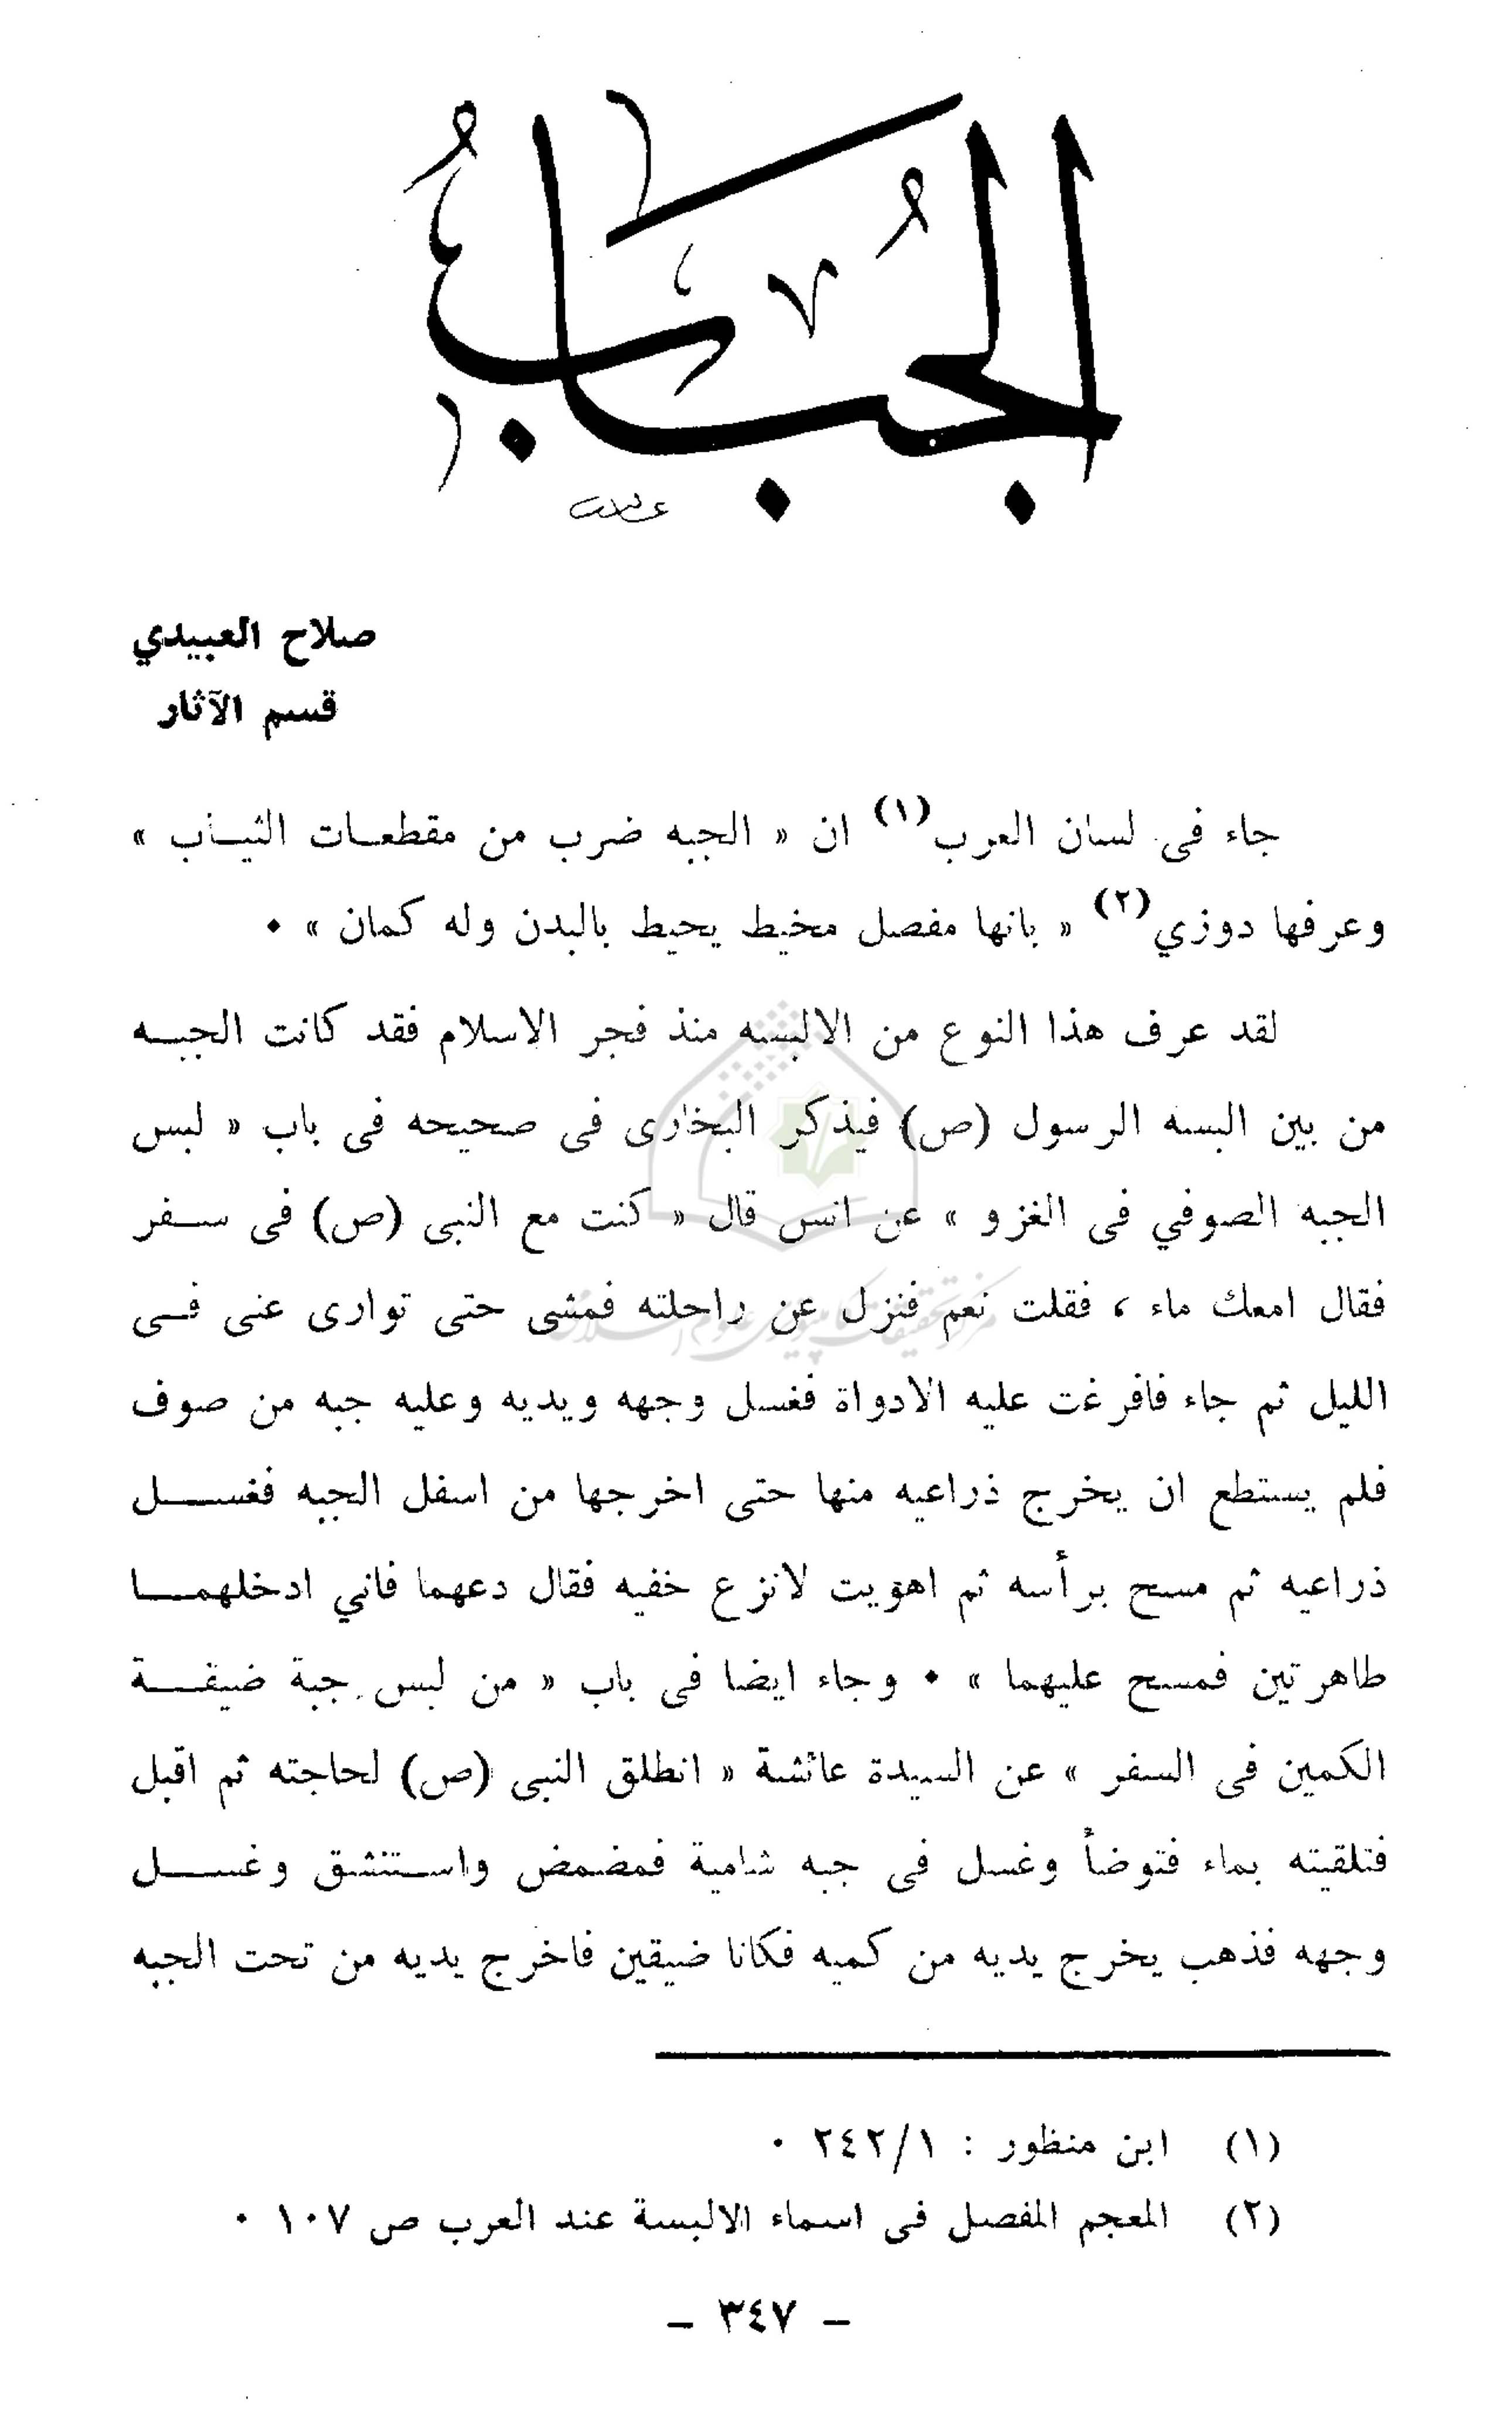 الجُبَابُ
صلاح العبيدي
قسم الآثار
جاء فى لسان العرب(١) ان « الجبه ضرب من مقطعات الثياب »
وعرفها دوزي(٢) « بانها مفصل مخيط يحيط بالبدن وله كمان » ٠
لقد عرف هذا النوع من الالبسه منذ فجر الاسلام فقد كانت الجبه
من بين البسه الرسول (ص) فيذكر البخارى فى صحيحه فى باب « لبس
الجبه الصوفي فى الغزو » عن انس قال « كنت مع النبى (ص) فى سفر
فقال امعك ماء ، فقلت نعم فنزل عن راحلته فمشى حتى توارى عنى فى
الليل ثم جاء فافرغت عليه الادواة فغسل وجهه ويديه وعليه جبه من صوف
فلم يستطع ان يخرج ذراعيه منها حتى اخرجها من اسفل الجبه فغسل
ذراعيه ثم مسح برأسه ثم اهويت لانزع خفيه فقال دعهما فاني ادخلهما
طاهرتين فمسح عليهما » ٠ وجاء ايضا فى باب « من لبس جبة ضيقة
الكمين فى السفر » عن السيدة عائشة « انطلق النبى (ص) لحاجته ثم اقبل
فتلقيته بماء فتوضأ وغسل فى جبه شامية فمضمض واستنشق وغسل
وجهه فذهب يخرج يديه من كميه فكانا ضيقين فاخرج يديه من تحت الجبه
(١) ابن منظور : ٢٤٢/١ ٠
(٢) المعجم المفصل فى اسماء الالبسة عند العرب ص ١٠٧ ٠
– ٣٤٧ –
مركز تحقيقات كامپيوترى علوم اسلامى